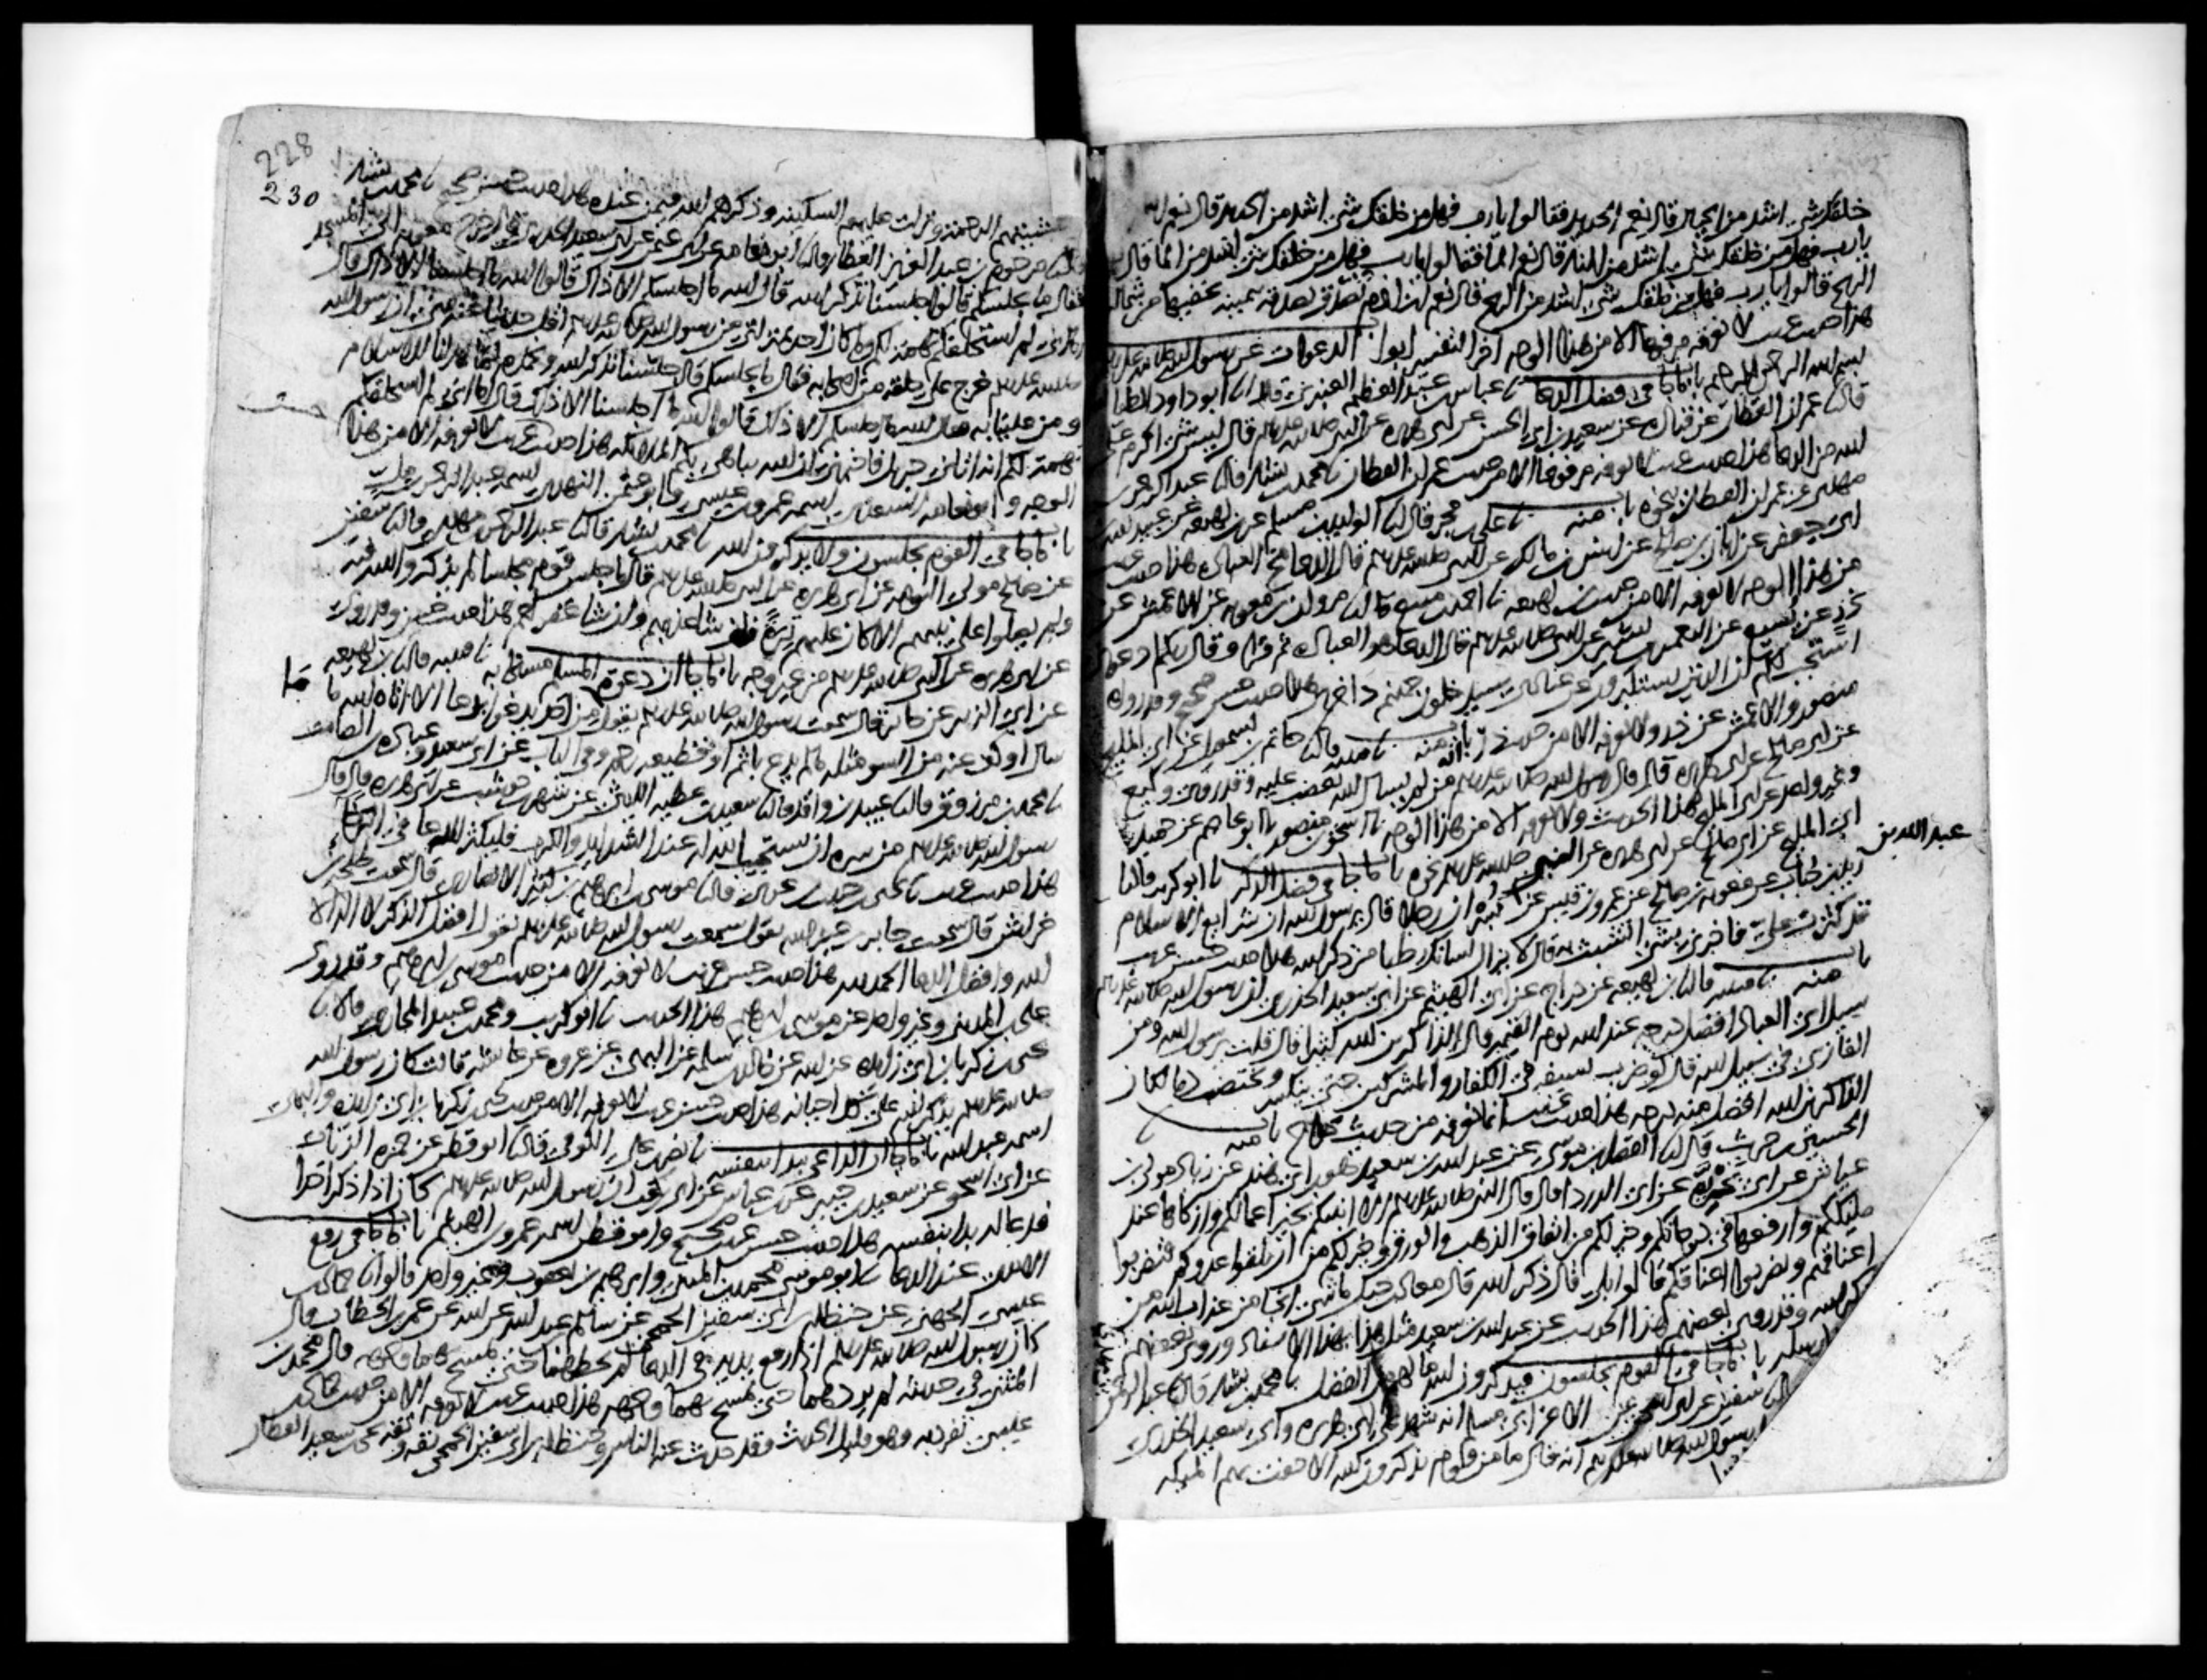 خلقك شي اشد من الجبال قال نعم الحديد فقالوا يارب فهل من خلقك شي اشد من الحديد قال نعم النار
يارب فهل من خلقك شي اشد من النار قال نعم الما فقالوا يارب فهل من خلقك شي اشد من الما قال
الريح قالوا يارب فهل من خلقك شي اشد من الريح قال نعم ابن ادم تصدق بصدقه بيمينه يخفيها من شماله
هذا حديث غريب لا نعرفه مرفوعا الا من هذا الوجه اخر التفسير ابواب الدعوات عن رسول الله صلى الله عليه
بسم الله الرحمن الرحيم باب ما جا في فضل الدعا نا عباس بن عبد العظيم العنبري قال نا ابو داود الطيا
قال نا عمران القطان عن قتاده عن سعيد بن ابي الحسن عن ابي هريره عن النبي صلى الله عليه وسلم قال ليس شي اكرم على
لله من الدعا هذا حديث غريب لا نعرفه مرفوعا الا من حديث عمران القطان نا محمد بن بشار قال نا عبد الرحمن بن
مهدي عن عمران القطان نحوه باب منه نا علي بن حجر قال نا الوليد بن مسلم عن ابن لهيعه عن عبيد الله
ابن جعفر عن ابان بن صالح عن انس بن مالك عن النبي صلى الله عليه وسلم قال الدعا مخ العباده هذا حديث غريب
من هذا الوجه لا نعرفه الا من حديث ابن لهيعه نا احمد بن منيع قال نا مروان بن معويه عن الاعمش عن
ذر عن يسيع عن النعمن بن بشير عن النبي صلى الله عليه وسلم قال الدعا هو العباده ثم قرا وقال ربكم ادعوني
استجب لكم ان الذين يستكبرون عن عبادتي سيدخلون جهنم داخرين هذا حديث حسن صحيح وقد رواه
منصور والاعمش عن ذر ولا نعرفه الا من حديث ذر باب منه نا قتيبه قال نا حاتم بن اسمعيل عن ابي المليح
عن ابي صالح عن ابي هريره قال قال رسول الله صلى الله عليه وسلم انه من لم يسال الله يغضب عليه وقد روى وكيع
وغير واحد عن ابي المليح هذا الحديث ولا نعرفه الا من هذا الوجه نا اسحق بن منصور نا ابو عاصم عن حميد
ابي المليح عن ابي صالح عن ابي هريره عن النبي صلى الله عليه وسلم نحوه باب ما جا في فضل الذكر نا ابو كريب قال نا
عبد الله بن
زيد بن حباب عن معويه بن صالح عن عمرو بن قيس عن ان رجلا قال يرسول الله ان شرايع الاسلام
قد كثرت علي فاخبرني بشي اتشبث به قال لا يزال لسانك رطبا من ذكر الله هذا حديث حسن غريب
باب منه نا قتيبه قال نا ابن لهيعه عن دراج عن ابي الهيثم عن ابي سعيد الخدري ان رسول الله صلى الله عليه وسلم
سيل اي العباد افضل درجه عند الله يوم القيمه قال الذاكرين الله كثيرا قال قلت يرسول الله ومن
الغازي في سبيل الله قال لو ضرب بسيفه في الكفار والمشركين حتى ينكسر ويختضب دما لكان
الذاكرين الله افضل منه درجه هذا حديث غريب انما نعرفه من حديث دراج باب منه نا
الحسين بن حريث قال نا الفضل بن موسى عن عبد الله بن سعيد هو ابن ابي هند عن زياد مولى ابن
عياش عن ابي بحريه عن ابي الدرداء قال قال النبي صلى الله عليه وسلم الا انبيكم بخير اعمالكم وازكاها عند
مليككم وارفعها في درجاتكم وخير لكم من انفاق الذهب والورق وخير لكم من ان تلقوا عدوكم فتضربوا
اعناقهم ويضربوا اعناقكم قالوا بلى قال ذكر الله قال معاذ بن جبل ما شي انجا من عذاب الله من
ذكر الله وقد روى بعضهم هذا الحديث عن عبد الله بن سعيد مثل هذا بهذا الاسناد وروى بعضهم
ارسله باب ما جا في القوم يجلسون فيذكرون الله ما لهم من الفضل نا محمد بن بشار قال نا عبد الرحمن
نا سفين عن ابي اسحق عن الاغر ابي مسلم انه شهد على ابي هريره وابي سعيد الخدري
رسول الله صلى الله عليه وسلم انه قال ما من قوم يذكرون الله الا حفت بهم الملايكه
228
230
غشيتهم الرحمه ونزلت عليهم السكينه وذكرهم الله فيمن عنده هذا حديث حسن صحيح نا محمد بن بشار
قال نا مرحوم بن عبد العزيز العطار قال نا ابو نعامه عن ابي عثمن عن ابي سعيد الخدري قال خرج معويه الى المسجد
فقال ما يجلسكم قالوا جلسنا نذكر الله قال الله ما اجلسكم الا ذاك قالوا الله ما اجلسنا الا ذاك قال
اما اني لم استحلفكم تهمه لكم وما كان احد بمنزلتي من رسول الله صلى الله عليه وسلم اقل حديثا عنه مني ان رسول الله
صلى الله عليه وسلم خرج على حلقه من اصحابه فقال ما يجلسكم قالوا جلسنا نذكر الله ونحمده لما هدانا للاسلام
ومن علينا به فقال الله ما اجلسكم الا ذاك قالوا الله ما اجلسنا الا ذاك قال اما اني لم استحلفكم
تهمه لكم انه اتاني جبريل فاخبرني ان الله يباهي بكم الملايكه هذا حديث حسن غريب لا نعرفه الا من هذا
الوجه وابو نعامه السعدي اسمه عمرو بن عيسى وابو عثمن النهدي اسمه عبد الرحمن بن مل
باب ما جا في القوم يجلسون ولا يذكرون الله نا محمد بن بشار قال نا عبد الرحمن بن مهدي قال نا سفين
عن صالح مولى التوامه عن ابي هريره عن النبي صلى الله عليه وسلم قال ما جلس قوم مجلسا لم يذكروا الله فيه
ولم يصلوا على نبيهم الا كان عليهم تره فان شا عذبهم وان شا غفر لهم هذا حديث حسن وقد روي
عن ابي هريره عن النبي صلى الله عليه وسلم من غير وجه باب ما جا ان دعوه المسلم مستجابه نا قتيبه قال نا ابن لهيعه
عن ابي الزبير عن جابر قال سمعت رسول الله صلى الله عليه وسلم يقول ما من احد يدعو بدعا الا اتاه الله ما
سال او كف عنه من السو مثله ما لم يدع باثم او قطيعه رحم وفي الباب عن ابي سعيد وعباده بن الصامت
نا محمد بن مرزوق قال نا عبيد بن واقد قال نا سعيد بن عطيه الليثي عن شهر بن حوشب عن ابي هريره قال قال
رسول الله صلى الله عليه وسلم من سره ان يستجيب الله له عند الشدايد والكرب فليكثر الدعا في الرخا
هذا حديث غريب نا يحيى بن حبيب بن عربي قال نا موسى بن ابرهيم بن كثير الانصاري قال سمعت طلحه بن
خراش قال سمعت جابر بن عبد الله يقول سمعت رسول الله صلى الله عليه وسلم يقول افضل الذكر لا اله الا
الله وافضل الدعا الحمد لله هذا حديث حسن غريب لا نعرفه الا من حديث موسى بن ابرهيم وقد روى
علي بن المديني وغير واحد عن موسى بن ابرهيم هذا الحديث نا ابو كريب ومحمد بن عبيد المحاربي قالا نا
يحيى بن زكريا بن ابي زايده عن ابيه عن خالد بن سلمه عن البهي عن عروه عن عايشه قالت كان رسول الله
صلى الله عليه وسلم يذكر الله على كل احيانه هذا حديث حسن غريب لا نعرفه الا من حديث يحيى بن زكريا بن ابي زايده والبهي
اسمه عبد الله باب ما جا ان الداعي يبدا بنفسه نا نصر بن علي الكوفي قال نا ابو قطن عن حمزه الزيات
عن ابي اسحق عن سعيد بن جبير عن ابن عباس عن ابي بن كعب ان رسول الله صلى الله عليه وسلم كان اذا ذكر احدا
فدعا له بدا بنفسه هذا حديث حسن غريب صحيح وابو قطن اسمه عمرو بن الهيثم باب ما جا في رفع
الايدي عند الدعا نا ابو موسى محمد بن المثنى وابرهيم بن يعقوب وغير واحد قالوا نا حماد بن
عيسى الجهني عن حنظله بن ابي سفين الجمحي عن سالم بن عبد الله عن ابيه عن عمر بن الخطاب قال
كان رسول الله صلى الله عليه وسلم اذا رفع يديه في الدعا لم يحطهما حتى يمسح بهما وجهه قال محمد بن
المثنى في حديثه لم يردهما حتى يمسح بهما وجهه هذا حديث غريب لا نعرفه الا من حديث حماد بن
عيسى تفرد به وهو قليل الحديث وقد حدث عنه الناس وحنظله بن ابي سفين الجمحي ثقه وثقه يحيى بن سعيد القطان